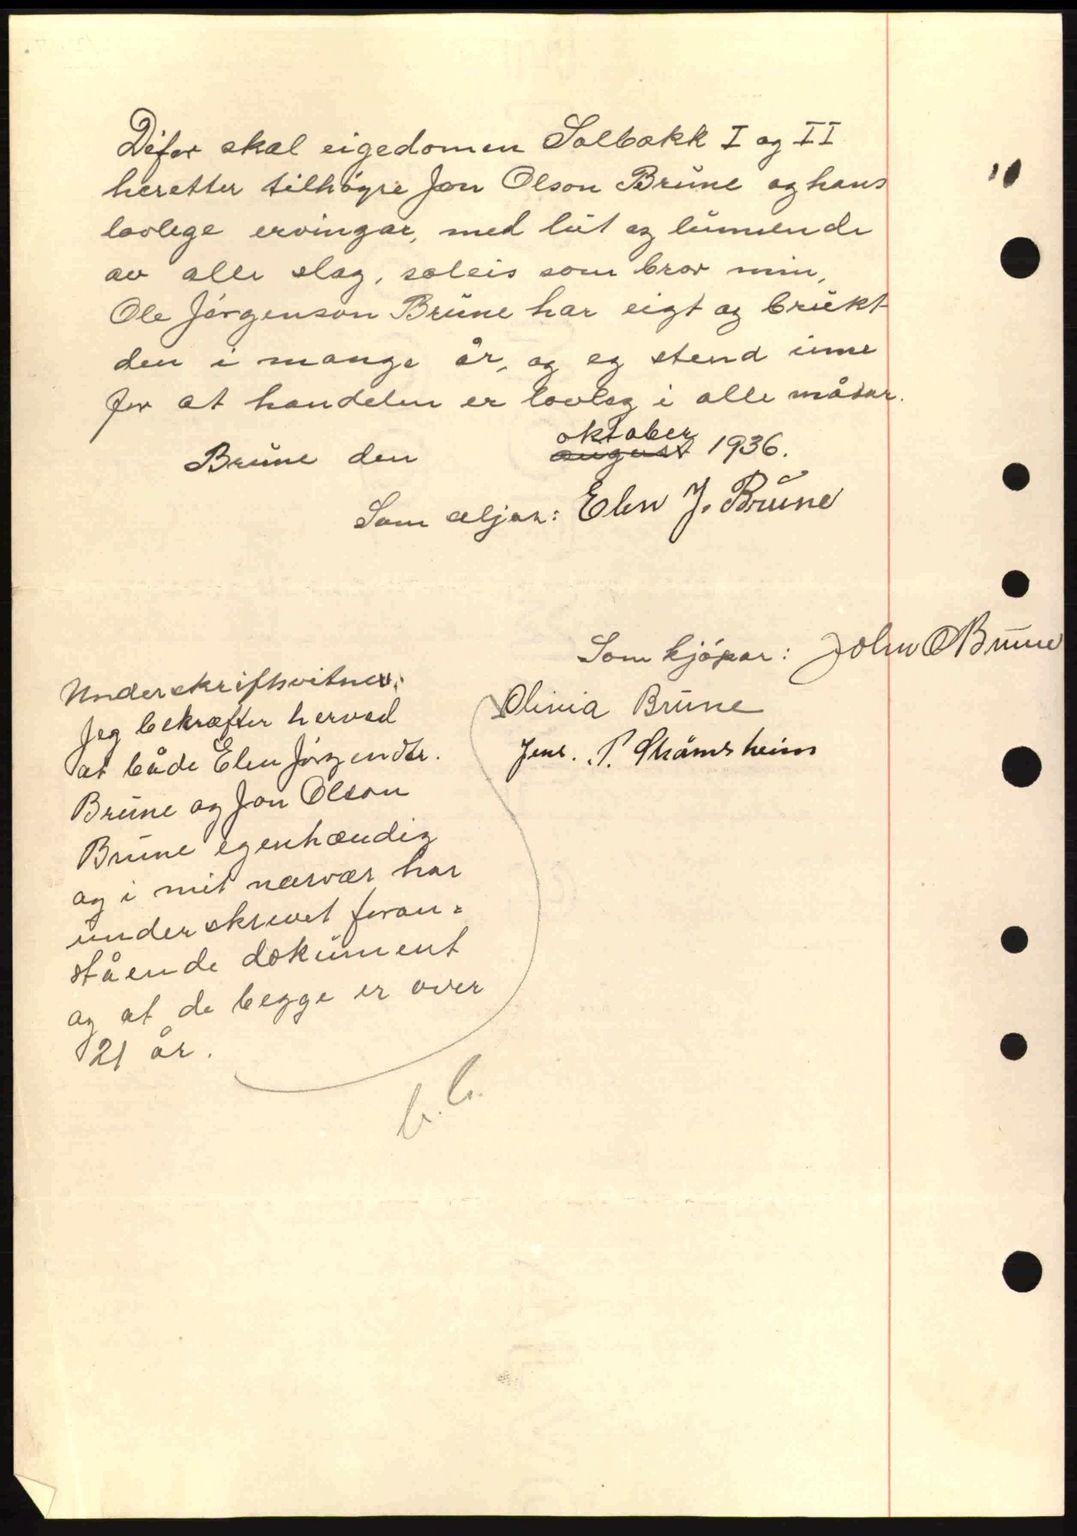 Difor skal eigedomen Solbakk I og II
heretter tilhøyre Jon Olson Brune og hans
lovlege ervingar, med lut og lunnende
av alle slag, soleis som bror min,
Ole Jørgenson Brune har eigt og brukt
den i mange år, og eg stend inne
for at handelen er lovleg i alle måtar.
Brune den august oktober 1936.
Som seljar: Elen J. Brune
Som kjøpar: John O Brune
Underskriftsvitner:
Jeg bekræfter herved
at både Elen Jørgendtr.
Brune og Jon Olson
Brune egenhændig
og i mit nærvær har
underskrevet foran-
stående dokument
og at de begge er over
21 år.
Olivia Brune
Jens. P.